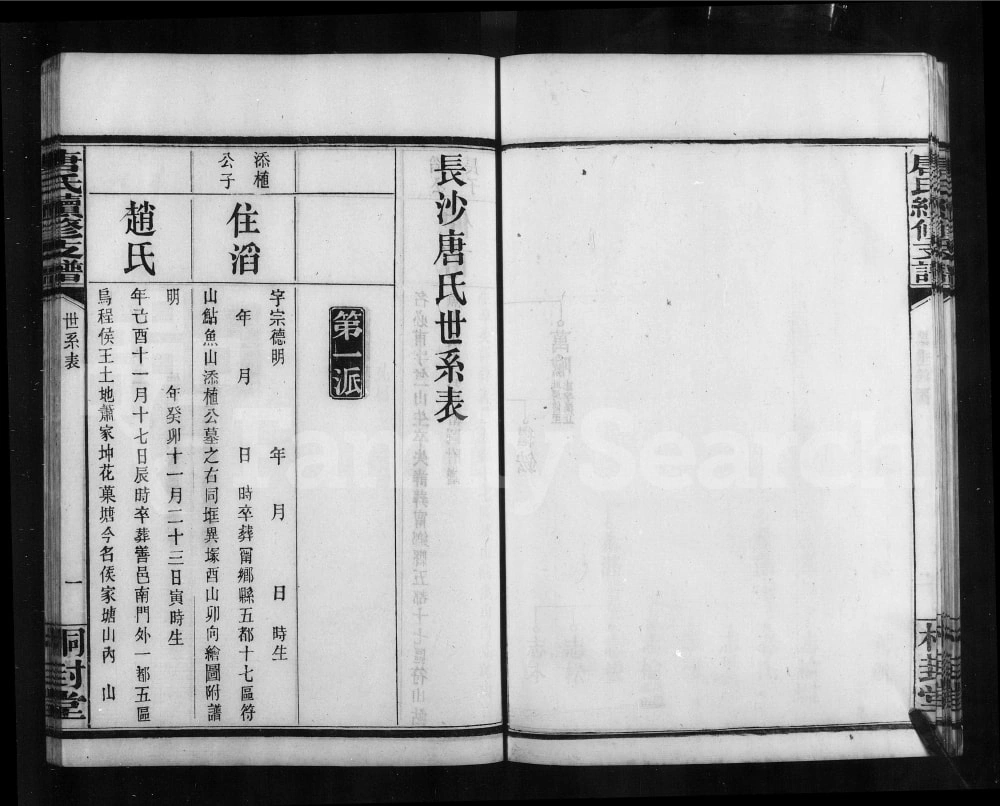 長沙唐氏世系表
第一派
添植
公子
住滔
字宗德明 年 月 日 時生
年 月 日 時卒葬甯鄉縣五都十七區符
山鮎魚山添植公墓之右同塋異塚酉山卯向繪圖附譜
趙氏
明 年癸卯十一月二十三日寅時生
年己酉十一月十七日辰時卒葬善邑南門外一都五區
烏程侯王土地蕭家坤花菓塘今名侯家塘山內 山
唐氏續修支譜
世系表
一
桐封堂